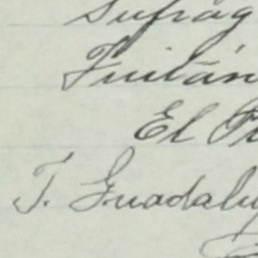 Sufrag
Fuitán
El Pr
T. Guadalu